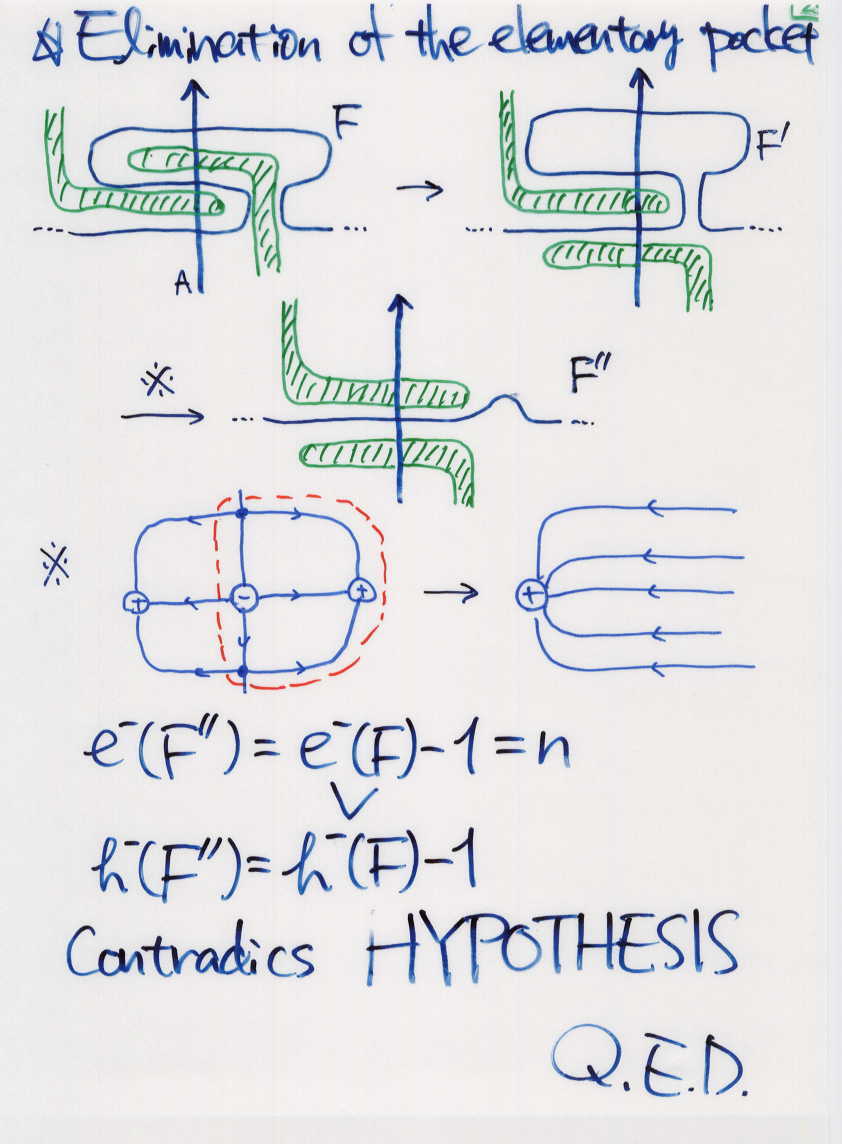 ☆ Elimination of the elementary pocket
F
F'
A
※
F"
※
+ - + +
e⁻(F") = e⁻(F)-1 = n
∨
h⁻(F") = h⁻(F)-1
Contradics HYPOTHESIS
Q.E.D.